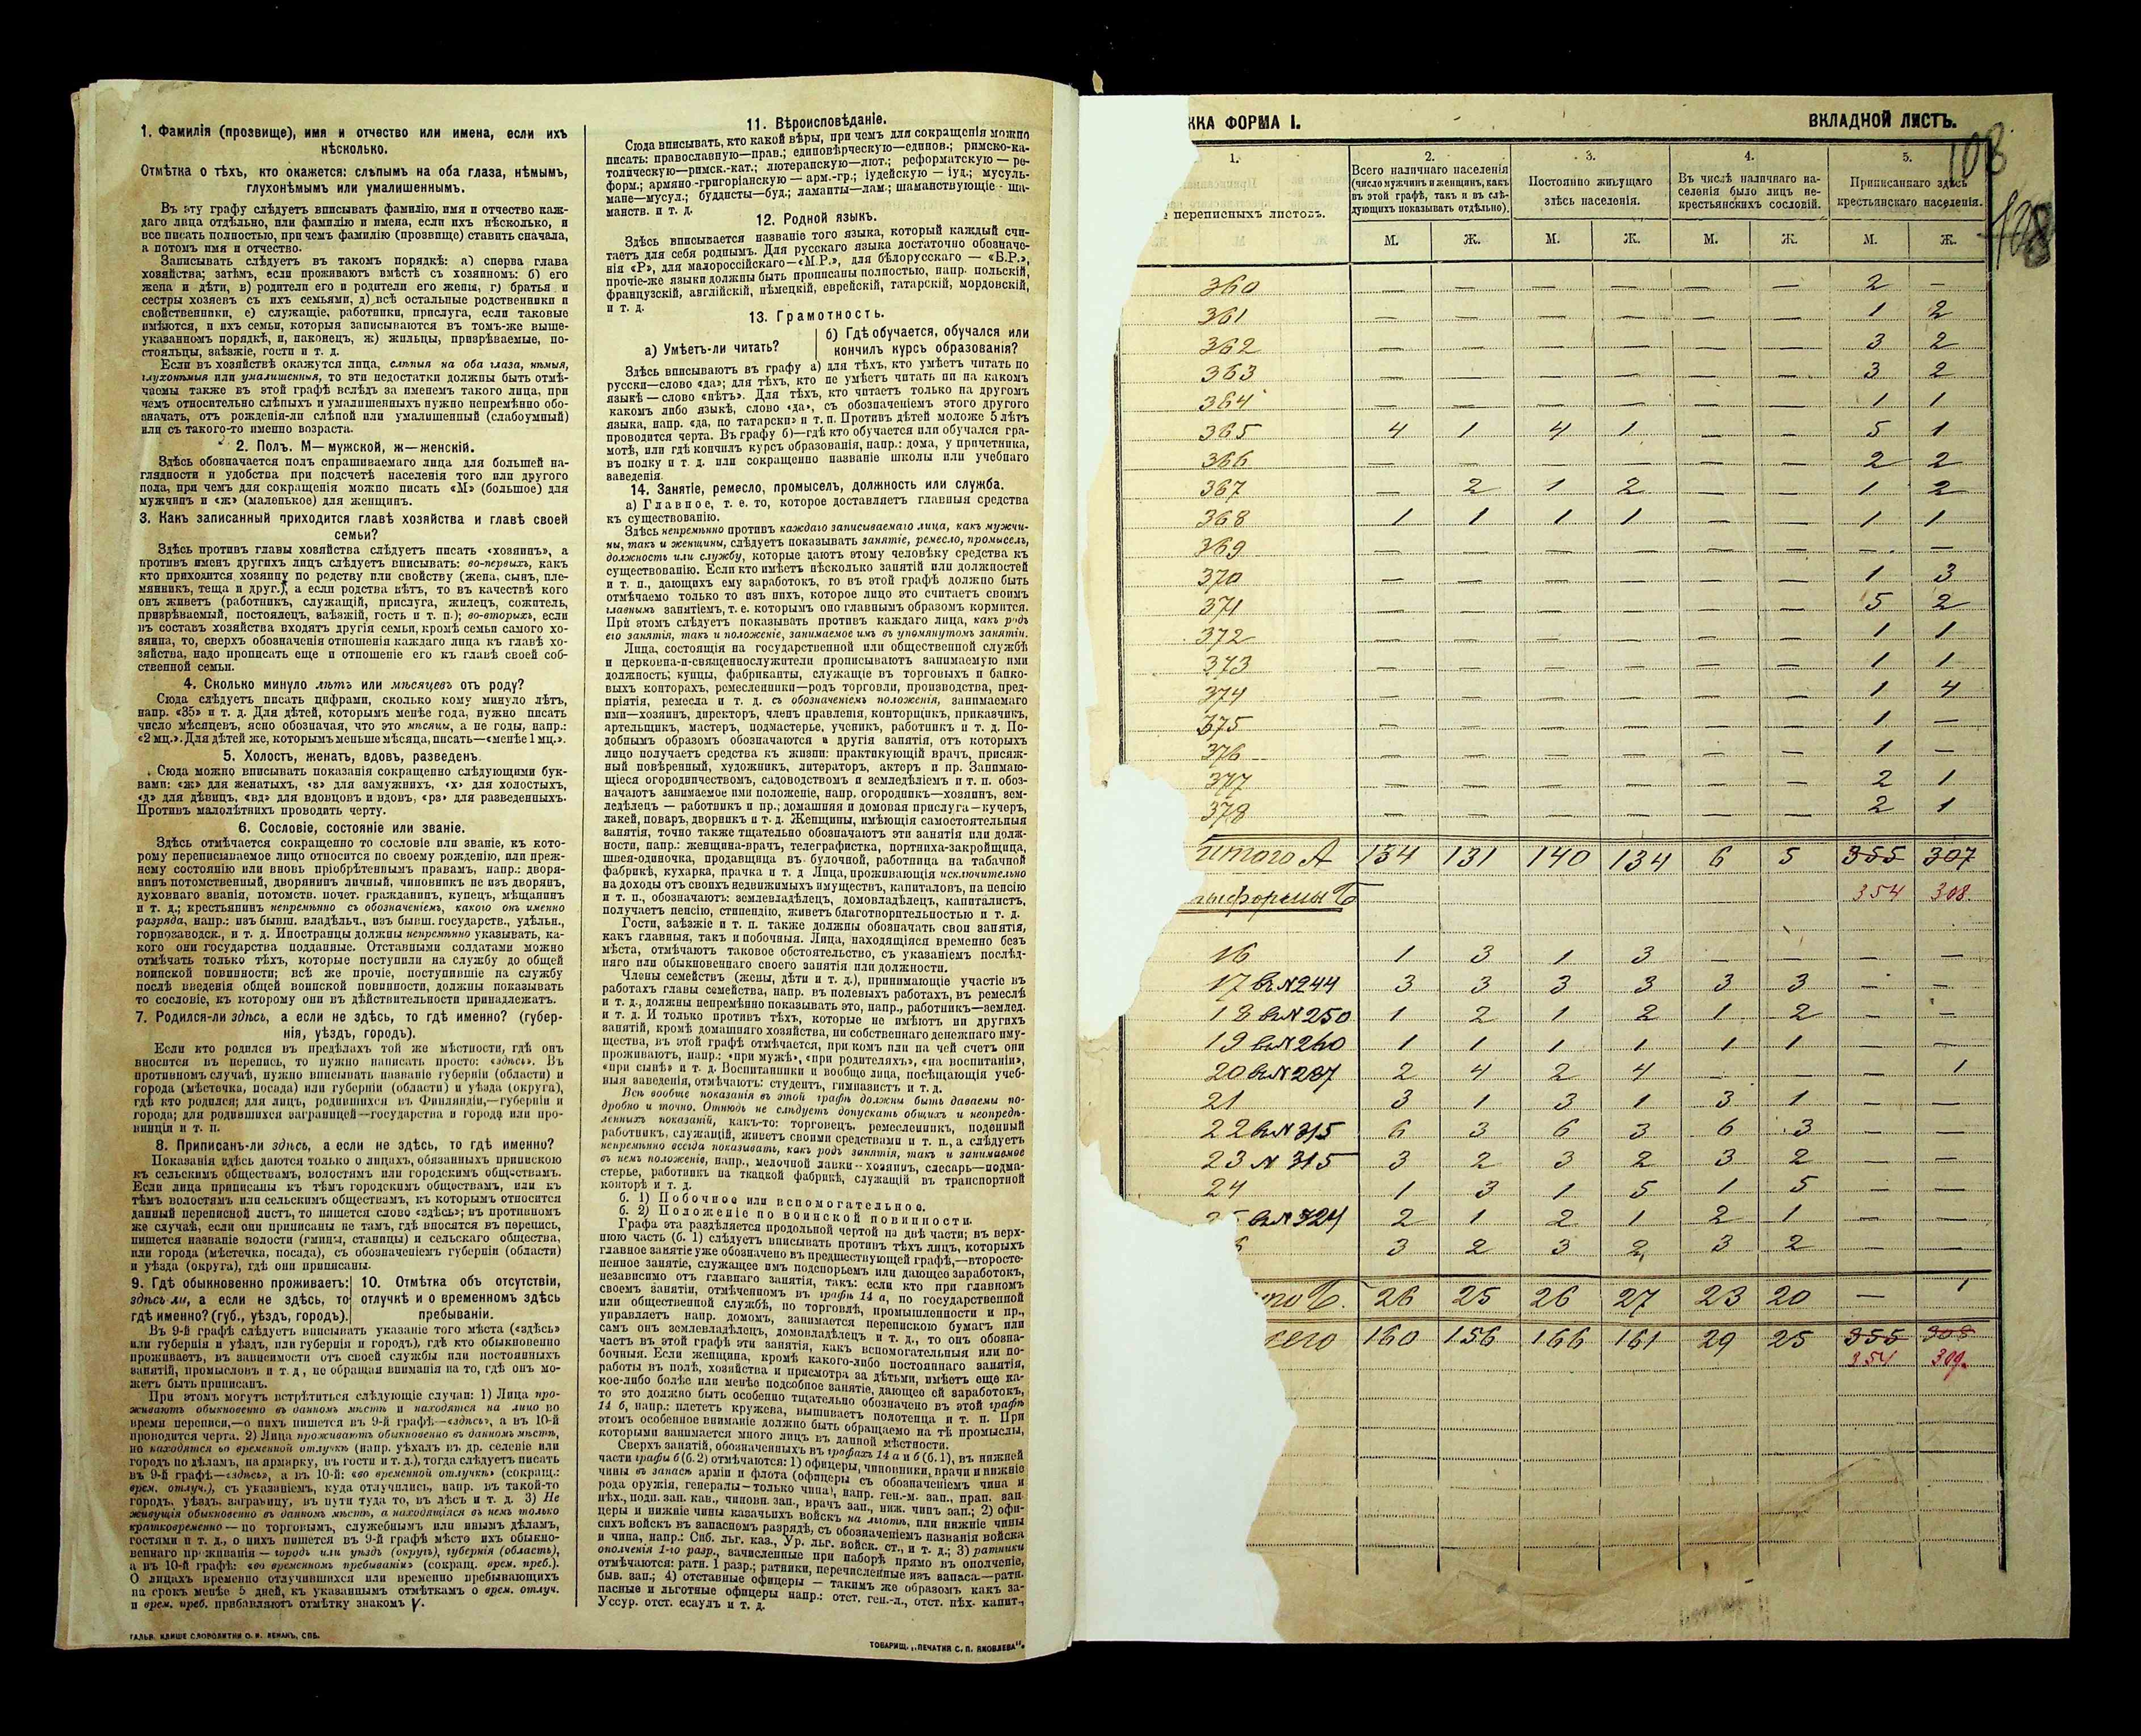 1. Фамилія (прозвище), имя и отчество или имена, если ихъ
нѣсколько.
Отмѣтка о тѣхъ, кто окажется: слѣпымъ на оба глаза, нѣмымъ,
глухонѣмымъ или умалишеннымъ.
Въ эту графу слѣдуетъ вписывать фамилію, имя и отчество каж-
даго лица отдѣльно, или фамилію и имена, если ихъ нѣсколько, и
все писать полностью, при чемъ фамилію (прозвище) ставить сначала,
а потомъ имя и отчество.
Записывать слѣдуетъ въ такомъ порядкѣ: а) сперва глава
хозяйства; затѣмъ, если проживаютъ вмѣстѣ съ хозяиномъ: б) его
жена и дѣти, в) родители его и родители его жены, г) братья и
сестры хозяевъ съ ихъ семьями, д) всѣ остальные родственники и
свойственники, е) служащіе, работники, прислуга, если таковые
имѣются, и ихъ семьи, которыя записываются въ томъ-же выше-
указанномъ порядкѣ, и, наконецъ, ж) жильцы, призрѣваемые, по-
стояльцы, заѣзжіе, гости и т. д.
Если въ хозяйствѣ окажутся лица, слѣпыя на оба глаза, нѣмыя,
глухонѣмыя или умалишенныя, то эти недостатки должны быть отмѣ-
чаемы также въ этой графѣ вслѣдъ за именемъ такого лица, при
чемъ относительно слѣпыхъ и умалишенныхъ нужно непремѣнно обо-
значать, отъ рожденія-ли слѣпой или умалишенный (слабоумный)
или съ такого-то именно возраста.
2. Полъ. М— мужской, ж—женскій.
Здѣсь обозначается полъ спрашиваемаго лица для большей на-
глядности и удобства при подсчетѣ населенія того или другого
пола, при чемъ для сокращенія можно писать «М» (большое) для
мужчинъ и «ж» (маленькое) для женщинъ.
3. Какъ записанный приходится главѣ хозяйства и главѣ своей
семьи?
Здѣсь противъ главы хозяйства слѣдуетъ писать «хозяинъ», а
противъ именъ другихъ лицъ слѣдуетъ вписывать: во-первыхъ, какъ
кто приходится хозяину по родству или свойству (жена, сынъ, пле-
мянникъ, теща и друг.), а если родства нѣтъ, то въ качествѣ кого
онъ живетъ (работникъ, служащій, прислуга, жилецъ, сожитель,
призрѣваемый, постоялецъ, заѣзжій, гость и т. п.); во-вторыхъ, если
въ составъ хозяйства входятъ другія семьи, кромѣ семьи самого хо-
зяина, то, сверхъ обозначенія отношенія каждаго лица къ главѣ хо-
зяйства, надо прописать еще и отношеніе его къ главѣ своей соб-
ственной семьи.
4. Сколько минуло лѣтъ или мѣсяцевъ отъ роду?
Сюда слѣдуетъ писать цифрами, сколько кому минуло лѣтъ,
напр. «35» и т. д. Для дѣтей, которымъ менѣе года, нужно писать
число мѣсяцевъ, ясно обозначая, что это мѣсяцы, а не годы, напр.:
«2 мц.». Для дѣтей же, которымъ меньше мѣсяца, писать—«менѣе 1 мц.».
5. Холостъ, женатъ, вдовъ, разведенъ.
Сюда можно вписывать показанія сокращенно слѣдующими бук-
вами: «ж» для женатыхъ, «з» для замужнихъ, «х» для холостыхъ,
«д» для дѣвицъ, «вд» для вдовцовъ и вдовъ, «рз» для разведенныхъ.
Противъ малолѣтнихъ проводить черту.
6. Сословіе, состояніе или званіе.
Здѣсь отмѣчается сокращенно то сословіе или званіе, къ кото-
рому переписываемое лицо относится по своему рожденію, или преж-
нему состоянію или вновь пріобрѣтеннымъ правамъ, напр.: дворя-
нинъ потомственный, дворянинъ личный, чиновникъ не изъ дворянъ,
духовнаго званія, потомств. почет. гражданинъ, купецъ, мѣщанинъ
и т. д.; крестьянинъ непремѣнно съ обозначеніемъ, какого онъ именно
разряда, напр.: изъ бывш. владѣльч., изъ бывш. государств., удѣльн.,
горнозаводск., и т. д. Иностранцы должны непремѣнно указывать, ка-
кого они государства подданные. Отставными солдатами можно
отмѣчать только тѣхъ, которые поступили на службу до общей
воинской повинности; всѣ же прочіе, поступившіе на службу
послѣ введенія общей воинской повинности, должны показывать
то сословіе, къ которому они въ дѣйствительности принадлежатъ.
7. Родился-ли здѣсь, а если не здѣсь, то гдѣ именно? (губер-
нія, уѣздъ, городъ).
Если кто родился въ предѣлахъ той же мѣстности, гдѣ онъ
вносится въ перепись, то нужно написать просто: «здѣсь». Въ
противномъ случаѣ, нужно вписывать названіе губерніи (области) и
города (мѣстечка, посада) или губерніи (области) и уѣзда (округа),
гдѣ кто родился; для лицъ, родившихся въ Финляндіи,—губерніи и
города; для родившихся заграницей—государства и города или про-
винціи и т. п.
8. Приписанъ-ли здѣсь, а если не здѣсь, то гдѣ именно?
Показанія здѣсь даются только о лицахъ, обязанныхъ припискою
къ сельскимъ обществамъ, волостямъ или городскимъ обществамъ.
Если лица приписаны къ тѣмъ городскимъ обществамъ, или къ
тѣмъ волостямъ или сельскимъ обществамъ, къ которымъ относится
данный переписной листъ, то пишется слово «здѣсь»; въ противномъ
же случаѣ, если они приписаны не тамъ, гдѣ вносятся въ перепись,
пишется названіе волости (гмины, станицы) и сельскаго общества,
или города (мѣстечка, посада), съ обозначеніемъ губерніи (области)
и уѣзда (округа), гдѣ они приписаны.
9. Гдѣ обыкновенно проживаетъ: 10. Отмѣтка объ отсутствіи,
здѣсь-ли, а если не здѣсь, то отлучкѣ и о временномъ здѣсь
гдѣ именно? (губ., уѣздъ, городъ). пребываніи.
Въ 9-й графѣ слѣдуетъ вписывать указаніе того мѣста («здѣсь»
или губернія и уѣздъ, или губернія и городъ), гдѣ кто обыкновенно
проживаетъ, въ зависимости отъ своей службы или постоянныхъ
занятій, промысловъ и т. д., не обращая вниманія на то, гдѣ онъ мо-
жетъ быть приписанъ.
При этомъ могутъ встрѣтиться слѣдующіе случаи: 1) Лица про-
живаютъ обыкновенно въ данномъ мѣстѣ и находятся на лицо во
время переписи,—о нихъ пишется въ 9-й графѣ—«здѣсь», а въ 10-й
проводится черта. 2) Лица проживаютъ обыкновенно въ данномъ мѣстѣ,
но находятся во временной отлучкѣ (напр. уѣхалъ въ др. селеніе или
городъ по дѣламъ, на ярмарку, въ гости и т. д.), тогда слѣдуетъ писать
въ 9-й графѣ—«здѣсь», а въ 10-й: «во временной отлучкѣ» (сокращ.:
врем. отлуч.), съ указаніемъ, куда отлучились, напр. въ такой-то
городъ, уѣздъ, заграницу, въ пути туда то, въ лѣсъ и т. д. 3) Не
живущія обыкновенно въ данномъ мѣстѣ, а находящіяся въ немъ только
кратковременно — по торговымъ, служебнымъ или инымъ дѣламъ,
гостями и т. д., о нихъ пишется въ 9-й графѣ мѣсто ихъ обыкно-
веннаго проживанія — городъ или уѣздъ (округъ), губернія (область),
а въ 10-й графѣ: «во временномъ пребываніи» (сокращ. врем. преб.).
О лицахъ временно отлучившихся или временно пребывающихъ
на срокъ менѣе 5 дней, къ указаннымъ отмѣткамъ о врем. отлуч.
и врем. преб. прибавляютъ отмѣтку знакомъ V.
ГАЛЬВ. КЛИШЕ СЛОВОЛИТНИ О. И. ЛЕМАНЪ, СПБ.
11. Вѣроисповѣданіе.
Сюда вписывать, кто какой вѣры, при чемъ для сокращенія можно
писать: православную—прав.; единовѣрческую—единов.; римско-ка-
толическую—римск.-кат.; лютеранскую—лют.; реформатскую — ре-
форм.; армяно-григоріанскую — арм.-гр.; іудейскую — іуд.; мусуль-
мане—мусул.; буддисты—буд.; ламаиты—лам.; шаманствующіе - ша-
манств. и т. д.
12. Родной языкъ.
Здѣсь вписывается названіе того языка, который каждый счи-
таетъ для себя роднымъ. Для русскаго языка достаточно обозначе-
нія «Р», для малороссійскаго—«М.Р.», для бѣлорусскаго — «Б.Р.»,
прочіе-же языки должны быть прописаны полностью, напр. польскій,
французскій, англійскій, нѣмецкій, еврейскій, татарскій, мордовскій,
и т. д.
13. Грамотность.
а) Умѣетъ-ли читать? б) Гдѣ обучается, обучался или
кончилъ курсъ образованія?
Здѣсь вписываютъ въ графу а) для тѣхъ, кто умѣетъ читать по
русски—слово «да»; для тѣхъ, кто не умѣетъ читать ни на какомъ
языкѣ — слово «нѣтъ». Для тѣхъ, кто читаетъ только на другомъ
какомъ либо языкѣ, слово «да», съ обозначеніемъ этого другого
языка, напр. «да, по татарски» и т. п. Противъ дѣтей моложе 5 лѣтъ
проводится черта. Въ графу б)—гдѣ кто обучается или обучался гра-
мотѣ, или гдѣ кончилъ курсъ образованія, напр.: дома, у причетника,
въ полку и т. д. или сокращенно названіе школы или учебнаго
заведенія.
14. Занятіе, ремесло, промыселъ, должность или служба.
а) Главное, т. е. то, которое доставляетъ главныя средства
къ существованію.
Здѣсь непремѣнно противъ каждаго записываемаго лица, какъ мужчи-
ны, такъ и женщины, слѣдуетъ показывать занятіе, ремесло, промыселъ,
должность или службу, которые даютъ этому человѣку средства къ
существованію. Если кто имѣетъ нѣсколько занятій или должностей
и т. п., дающихъ ему заработокъ, то въ этой графѣ должно быть
отмѣчаемо только то изъ нихъ, которое лицо это считаетъ своимъ
главнымъ занятіемъ, т. е. которымъ оно главнымъ образомъ кормится.
При этомъ слѣдуетъ показывать противъ каждаго лица, какъ родъ
его занятія, такъ и положеніе, занимаемое имъ въ упомянутомъ занятіи.
Лица, состоящія на государственной или общественной службѣ
и церковно-и-священнослужители прописываютъ занимаемую ими
должность; купцы, фабриканты, служащіе въ торговыхъ и банко-
выхъ конторахъ, ремесленники—родъ торговли, производства, пред-
пріятія, ремесла и т. д. съ обозначеніемъ положенія, занимаемаго
ими—хозяинъ, директоръ, членъ правленія, конторщикъ, приказчикъ,
артельщикъ, мастеръ, подмастерье, ученикъ, работникъ и т. д. По-
добнымъ образомъ обозначаются и другія занятія, отъ которыхъ
лицо получаетъ средства къ жизни: практикующій врачъ, присяж-
ный повѣренный, художникъ, литераторъ, актеръ и пр. Занимаю-
щіеся огородничествомъ, садоводствомъ и земледѣліемъ и т. п. обоз-
начаютъ занимаемое ими положеніе, напр. огородникъ—хозяинъ, зем-
ледѣлецъ — работникъ и пр.; домашняя и домовая прислуга—кучеръ,
лакей, поваръ, дворникъ и т. д. Женщины, имѣющія самостоятельныя
занятія, точно также тщательно обозначаютъ эти занятія или долж-
ности, напр.: женщина-врачъ, телеграфистка, портниха-закройщица,
швея-одиночка, продавщица въ булочной, работница на табачной
фабрикѣ, кухарка, прачка и т. д Лица, проживающія исключительно
на доходы отъ своихъ недвижимыхъ имуществъ, капиталовъ, на пенсію
и т. п., обозначаютъ: землевладѣлецъ, домовладѣлецъ, капиталистъ,
получаетъ пенсію, стипендію, живетъ благотворительностью и т. д.
Гости, заѣзжіе и т. п. также должны обозначать свои занятія,
какъ главныя, такъ и побочныя. Лица, находящіяся временно безъ
мѣста, отмѣчаютъ таковое обстоятельство, съ указаніемъ послѣд-
няго или обыкновеннаго своего занятія или должности.
Члены семействъ (жены, дѣти и т. д.), принимающіе участіе въ
работахъ главы семейства, напр. въ полевыхъ работахъ, въ ремеслѣ
и т. д., должны непремѣнно показывать это, напр., работникъ—землед.
и т. д. И только противъ тѣхъ, которые не имѣютъ ни другихъ
занятій, кромѣ домашняго хозяйства, ни собственнаго денежнаго иму-
щества, въ этой графѣ отмѣчается, при комъ или на чей счетъ они
проживаютъ, напр.: «при мужѣ», «при родителяхъ», «на воспитаніи»,
«при сынѣ» и т. д. Воспитанники и вообще лица, посѣщающія учеб-
ныя заведенія, отмѣчаютъ: студентъ, гимназистъ и т. д.
Всѣ вообще показанія въ этой графѣ должны быть даваемы по-
дробно и точно. Отнюдь не слѣдуетъ допускать общихъ и неопредѣ-
ленныхъ показаній, какъ-то: торговецъ, ремесленникъ, поденный
работникъ, служащій, живетъ своими средствами и т. п., а слѣдуетъ
непремѣнно всегда показывать, какъ родъ занятія, такъ и занимаемое
въ немъ положеніе, напр., мелочной лавки--хозяинъ, слесарь—подма-
стерье, работникъ на ткацкой фабрикѣ, служащій въ транспортной
конторѣ и т. д.
б. 1) Побочное или вспомогательное.
б. 2) Положеніе по воинской повинности.
Графа эта раздѣляется продольной чертой на двѣ части; въ верх-
нюю часть (б. 1) слѣдуетъ вписывать противъ тѣхъ лицъ, которыхъ
главное занятіе уже обозначено въ предшествующей графѣ,—второсте-
пенное занятіе, служащее имъ подспорьемъ или дающее заработокъ,
независимо отъ главнаго занятія, такъ: если кто при главномъ
своемъ занятіи, отмѣченномъ въ графѣ 14 а, по государственной
или общественной службѣ, по торговлѣ, промышленности и пр.,
управляетъ напр. домомъ, занимается перепискою бумагъ или
самъ онъ землевладѣлецъ, домовладѣлецъ и т. д., то онъ обозна-
чаетъ въ этой графѣ эти занятія, какъ вспомогательныя или по-
бочныя. Если женщина, кромѣ какого-либо постояннаго занятія,
работы въ полѣ, хозяйства и присмотра за дѣтьми, имѣетъ еще ка-
кое-либо болѣе или менѣе подсобное занятіе, дающее ей заработокъ,
то это должно быть особенно тщательно обозначено въ этой графѣ
14 б, напр.: плететъ кружева, вышиваетъ полотенца и т. п. При
этомъ особенное вниманіе должно быть обращаемо на тѣ промыслы,
которыми занимается много лицъ въ данной мѣстности.
Сверхъ занятій, обозначенныхъ въ графахъ 14 а и б (б. 1), въ нижней
части графы б (б. 2) отмѣчаются: 1) офицеры, чиновники, врачи и нижніе
чины въ запасѣ арміи и флота (офицеры съ обозначеніемъ чина и
рода оружія, генералы—только чина), напр. ген.-м. зап., прап. зап.
пѣх., подп. зап. кав., чиновн. зап., врачъ зап., ниж. чинъ зап.; 2) офи-
церы и нижніе чины казачьихъ войскъ на льготѣ, или нижніе чины
сихъ войскъ въ запасномъ разрядѣ, съ обозначеніемъ названія войска
и чина, напр.: Сиб. льг. каз., Ур. льг. войск. ст., и т. д.; 3) ратники
ополченія 1-го разр., зачисленные при наборѣ прямо въ ополченіе,
отмѣчаются: ратн. 1 разр.; ратники, перечисленные изъ запаса—ратн.
быв. зап.; 4) отставные офицеры — такимъ же образомъ какъ за-
пасные и льготные офицеры напр.: отст. ген.-л., отст. пѣх. капит.,
Уссур. отст. есаулъ и т. д.
ТОВАРИЩ. „ПЕЧАТНЯ С. П. ЯКОВЛЕВА“.
ЖКА ФОРМА I. ВКЛАДНОЙ ЛИСТЪ.
108
108
1. 2. 3. 4. 5.
переписныхъ листовъ.
Всего наличнаго населенія
(число мужчинъ и женщинъ, какъ
въ этой графѣ, такъ и въ слѣ-
дующихъ показывать отдѣльно).
Постоянно живущаго
здѣсь населенія.
Въ числѣ наличнаго на-
селенія было лицъ не-
крестьянскихъ сословій.
Приписаннаго здѣсь
крестьянскаго населенія.
М. Ж. М. Ж. М. Ж. М. Ж.
360 — — — — — — 2 —
361 — — — — — — 1 2
362 — — — — — — 3 2
363 — — — — — — 3 2
364 — — — — — — 1 1
365 4 1 4 1 — — 5 1
366 — — — — — — 2 2
367 — 2 1 2 — — 1 2
368 1 1 1 1 — — 1 1
369 — — — — — — — —
370 — — — — — — 1 3
371 — — — — — — 5 2
372 — — — — — — 1 1
373 — — — — — — 1 1
374 — — — — — — 1 4
375 — — — — — — 1 —
376 — — — — — — 1 —
377 — — — — — — 2 1
378 — — — — — — 2 1
Итого А 134 131 140 134 6 5 355 307
формы Б 354 308.
16 1 3 1 3 — — — —
17 в. N 244 3 3 3 3 3 3 — —
18 в. N 250 1 2 1 2 1 2 — —
19 в. N 260 1 1 1 1 1 1 — —
20 в. N 287 2 4 2 4 — — — 1
21 3 1 3 1 3 1 — —
22 в. N 315 6 3 6 3 6 3 — —
23 N 315 3 2 3 2 3 2 — —
24 1 3 1 5 1 5 — —
в. N 324 2 1 2 1 2 1 — —
3 2 3 2 3 2 — —
то Б. 26 25 26 27 23 20 — 1
сего 160 156 166 161 29 25 355 308
354 309.